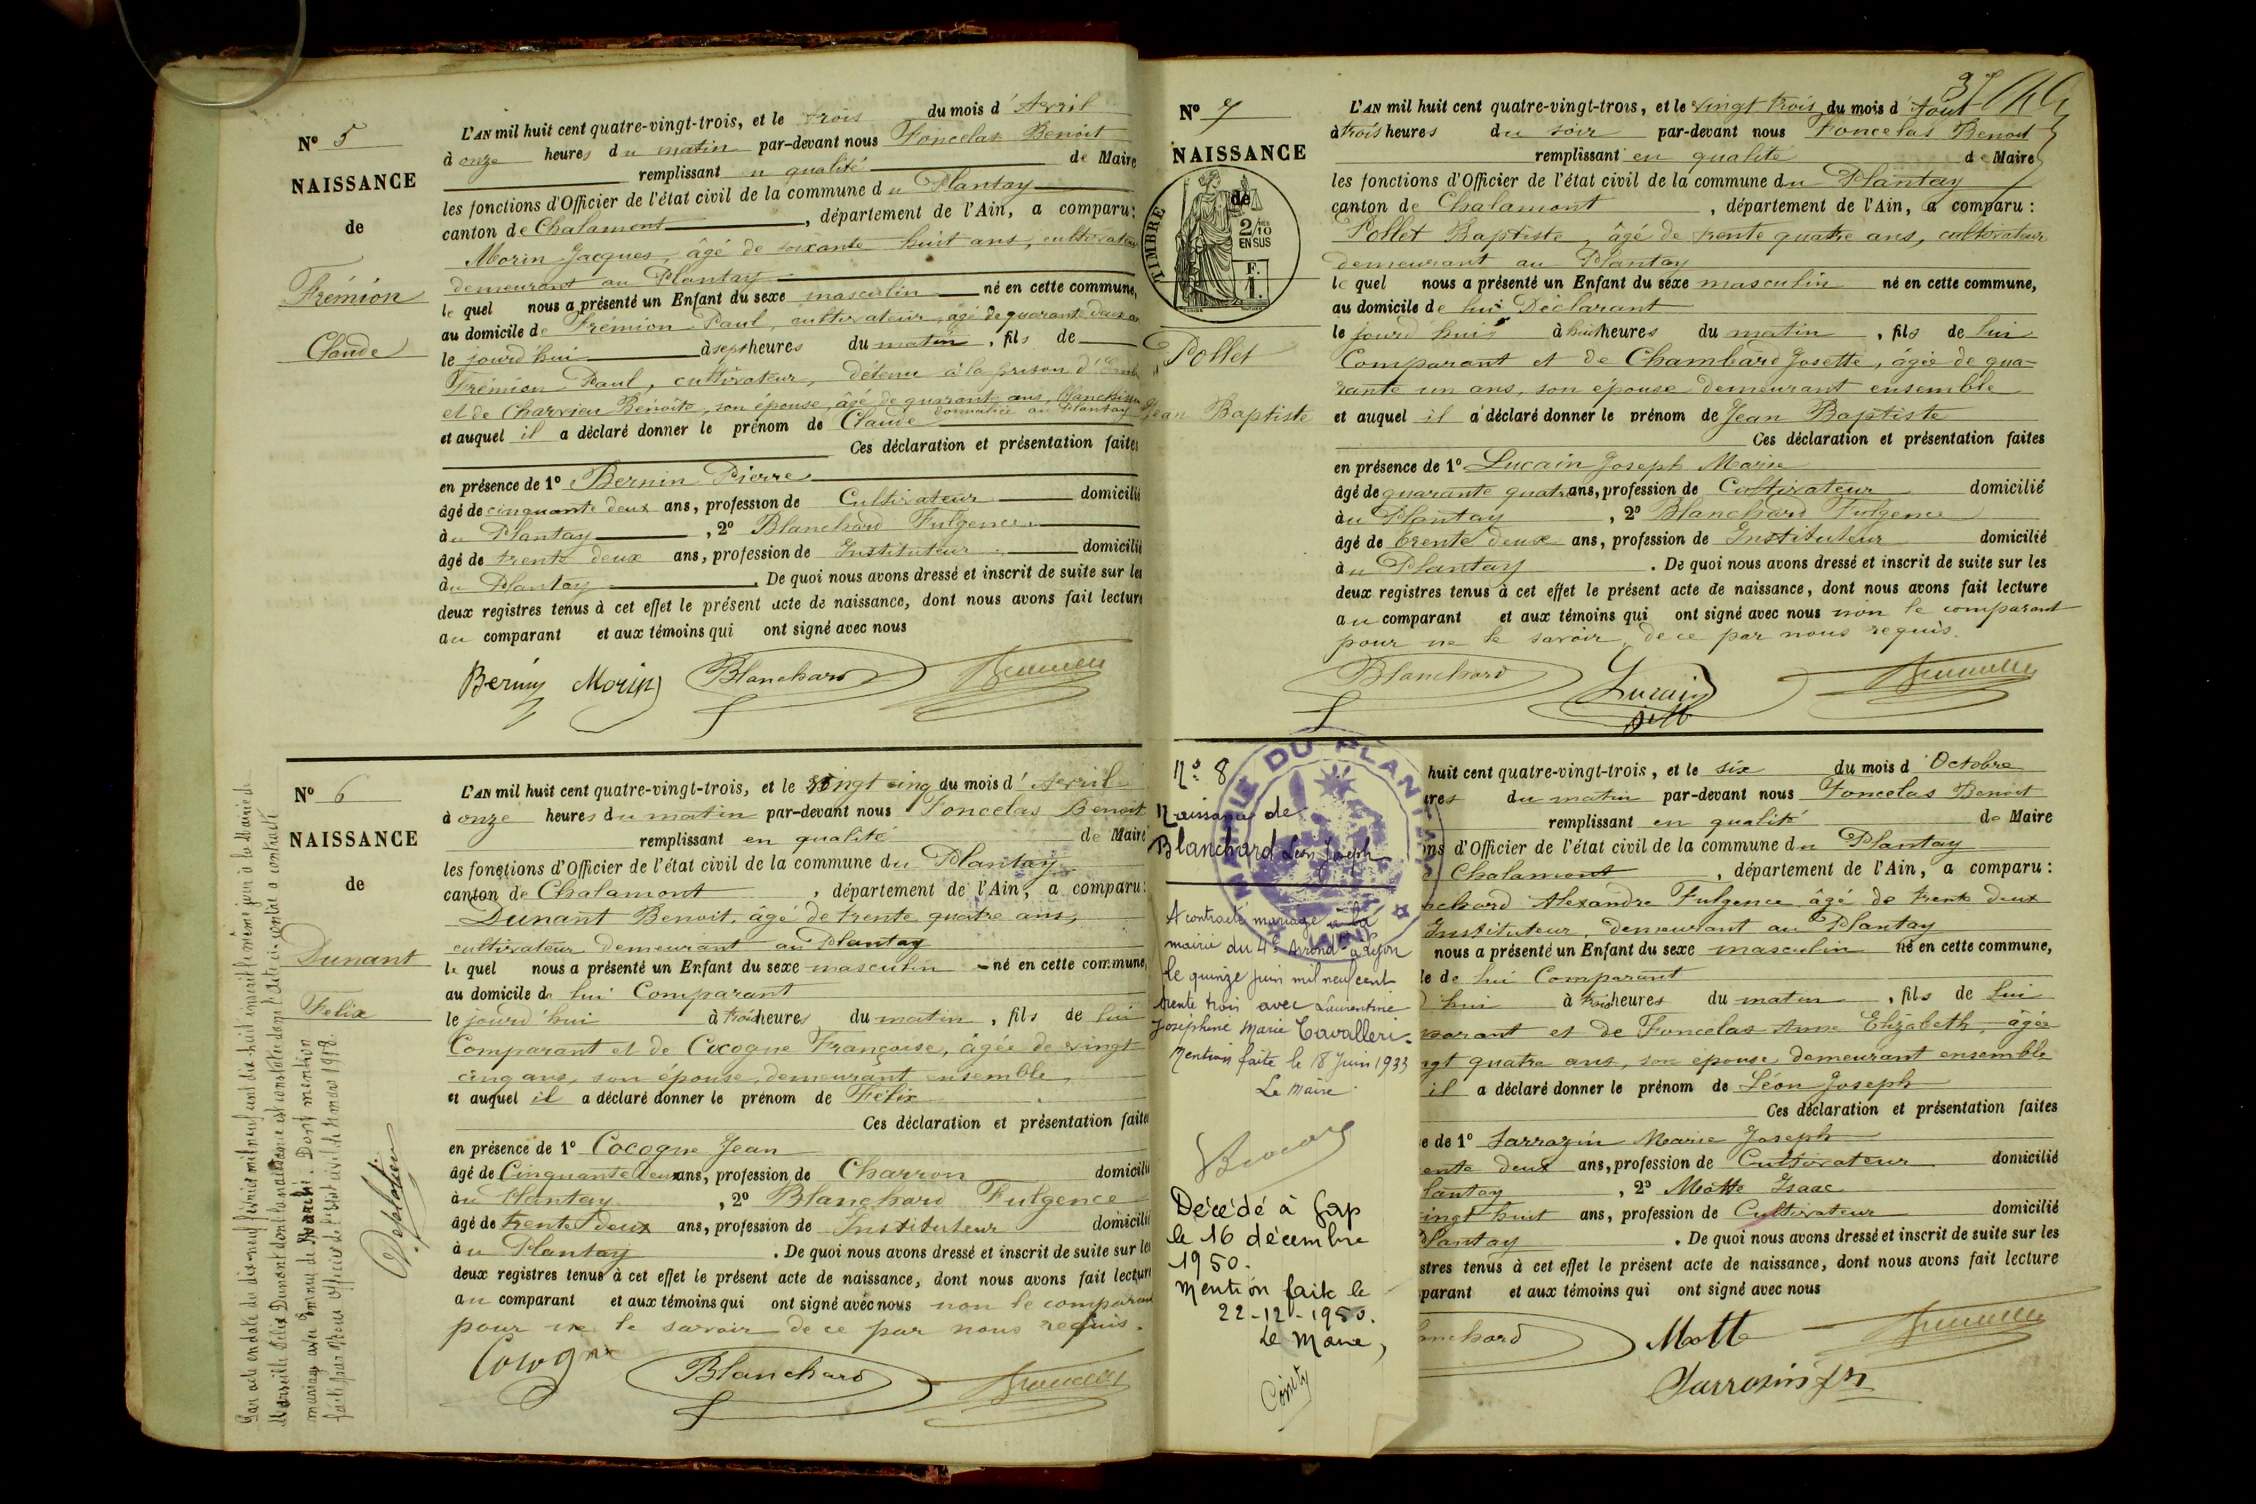 Nº 5
NAISSANCE
de
Frémion
Claude
L'AN mil huit cent quatre-vingt-trois, et le trois du mois d'Avril
à onze heures du matin par-devant nous Foncelas Benoit
remplissant en qualité de Maire
les fonctions d'Officier de l'état civil de la commune du Plantay
canton de Chalamont, département de l'Ain, a comparu:
Morin Jacques, âgé de soixante huit ans, cultivateur
demeurant au Plantay
lequel nous a présenté un Enfant du sexe masculin né en cette commune,
au domicile de Frémion Paul, cultivateur, âgé de quarante deux ans
le jourd'hui à sept heures du matin, fils de
Frémion Paul, cultivateur, détenu à la prison d'
et de Charvieu Benoîte, son épouse, âgé de quarante ans,
domiciliée au Plantay
et auquel il a déclaré donner le prénom de Claude
Ces déclaration et présentation faites
en présence de 1º Bernin Pierre
âgé de cinquante deux ans, profession de Cultivateur domicilié
au Plantay, 2º Blanchard Fulgence
âgé de trente deux ans, profession de Instituteur domicilié
au Plantay. De quoi nous avons dressé et inscrit de suite sur les
deux registres tenus à cet effet le présent acte de naissance, dont nous avons fait lecture
au comparant et aux témoins qui ont signé avec nous
Bernin Morin Blanchard
Nº 6
NAISSANCE
de
Dunant
Felix
L'AN mil huit cent quatre-vingt-trois, et le vingt cinq du mois d'Avril
à onze heures du matin par-devant nous Foncelas Benoit
remplissant en qualité de Maire
les fonctions d'Officier de l'état civil de la commune du Plantay
canton de Chalamont, département de l'Ain, a comparu:
Dunant Benoit, âgé de trente quatre ans,
cultivateur demeurant au Plantay
lequel nous a présenté un Enfant du sexe masculin né en cette commune,
au domicile de lui Comparant
le jourd'hui à trois heures du matin, fils de lui
Comparant et de Cocogne Françoise, âgée de vingt
cinq ans, son épouse, demeurant ensemble,
et auquel il a déclaré donner le prénom de Félix
Ces déclaration et présentation faites
en présence de 1º Cocogne Jean
âgé de Cinquante deux ans, profession de Charron domicilié
au Plantay, 2º Blanchard Fulgence
âgé de trente deux ans, profession de Instituteur domicilié
au Plantay. De quoi nous avons dressé et inscrit de suite sur les
deux registres tenus à cet effet le présent acte de naissance, dont nous avons fait lecture
au comparant et aux témoins qui ont signé avec nous non le comparant
pour ne le savoir de ce par nous requis.
Cocogne Blanchard
Par acte en date du dix-neuf février mil neuf cent dix huit inscrit le même jour à la Mairie de
Marseille Félix Dunant dont la naissance est constatée dans l'acte ci-contre a contracté
mariage avec Emma de. Dont mention
faite par Nous Officier de l'état civil le mars 1918.
Nº 7
NAISSANCE
de
TIMBRE
2/10
EN SUS
Pollet
Jean Baptiste
37
L'AN mil huit cent quatre-vingt-trois, et le vingt trois du mois d'Août
à trois heures du soir par-devant nous Foncelas Benoit
remplissant en qualité de Maire
les fonctions d'Officier de l'état civil de la commune du Plantay
canton de Chalamont, département de l'Ain, a comparu:
Pollet Baptiste, âgé de trente quatre ans, cultivateur
demeurant au Plantay
lequel nous a présenté un Enfant du sexe masculin né en cette commune,
au domicile de lui Déclarant
le jourd'hui à huit heures du matin, fils de lui
Comparant et de Chambard Josette, âgée de qua-
rante un ans, son épouse demeurant ensemble
et auquel il a déclaré donner le prénom de Jean Baptiste
Ces déclaration et présentation faites
en présence de 1º Lucain Joseph Marie
âgé de quarante quatre ans, profession de Cultivateur domicilié
au Plantay, 2º Blanchard Fulgence
âgé de trente deux ans, profession de Instituteur domicilié
au Plantay. De quoi nous avons dressé et inscrit de suite sur les
deux registres tenus à cet effet le présent acte de naissance, dont nous avons fait lecture
au comparant et aux témoins qui ont signé avec nous non le comparant
pour ne le savoir, de ce par nous requis.
Blanchard Lucain
MAIRIE DU PLANTAY
AIN
Nº 8
Naissance de
Blanchard Léon Joseph
A contracté mariage à la
mairie du 4e Arrondt à Lyon
le quinze juin mil neuf cent
trente trois avec Laurentine
Joséphine Marie Cavalleri.
Mention faite le 18 Juin 1933
Le Maire
Décédé à Gap
le 16 décembre
1950.
Mention faite le
22-12-1950.
Le Maire,
huit cent quatre-vingt-trois, et le six du mois d'Octobre
ures du matin par-devant nous Foncelas Benoit
remplissant en qualité de Maire
ns d'Officier de l'état civil de la commune du Plantay
e Chalamont, département de l'Ain, a comparu:
nchard Alexandre Fulgence âgé de trente deux
Instituteur, demeurant au Plantay
nous a présenté un Enfant du sexe masculin né en cette commune,
le de lui Comparant
d'hui à trois heures du matin, fils de lui
parant et de Foncelas Anne Elizabeth, âgée
ngt quatre ans, son épouse, demeurant ensemble
il a déclaré donner le prénom de Léon Joseph
Ces déclaration et présentation faites
e de 1º Sarrazin Marie Joseph
ente deux ans, profession de Cultivateur domicilié
lantay, 2º Motte Isaac
ingt huit ans, profession de Cultivateur domicilié
Plantay. De quoi nous avons dressé et inscrit de suite sur les
stres tenus à cet effet le présent acte de naissance, dont nous avons fait lecture
parant et aux témoins qui ont signé avec nous
anchard Motte
Sarrozin